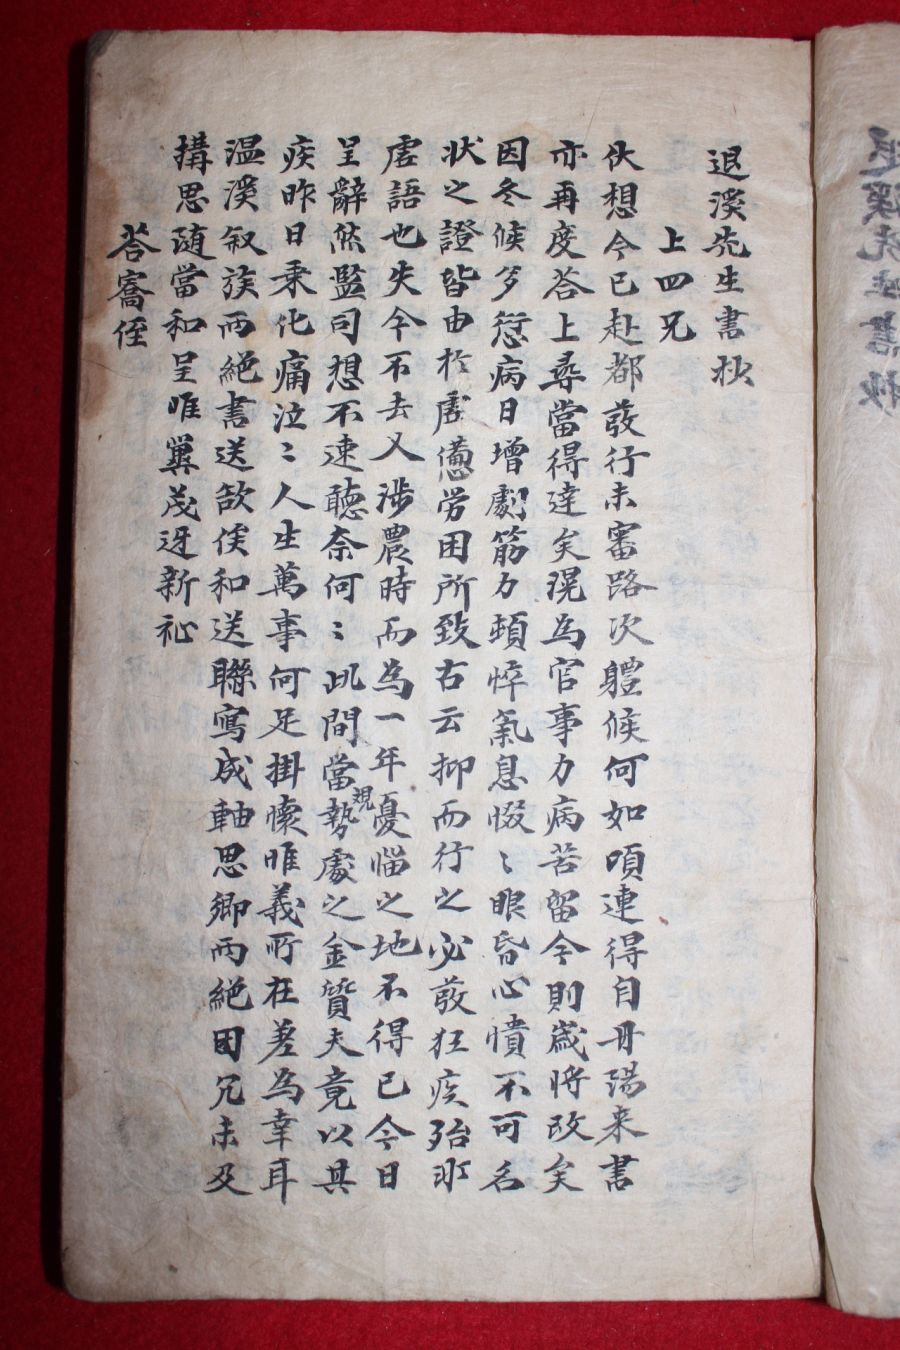 退溪先生書抄
上四兄
伏想今已赴都發行未審路次軆候何如頃連得自丹陽来書
亦再度答上尋當得達矣滉為官事力病苦留今則歲將改矣
因冬候多愆病日增劇筋力頓悴氣息惙〻眼昏心憒不可名
狀之證皆由於虛憊勞困所致古云抑而行之必發狂疾殆非
虛語也失今不去又涉農時而為一年憂惱之地不得已今日
呈辭然監司想不速聽奈何〻此間當觀勢處之金質夫竟以其
疾昨日乘化痛泣〻人生萬事何足掛懷唯義所在差為幸耳
温溪叙族兩絶書送欲俟和送聯寫成軸思卿兩絶因冗未及
搆思随當和呈唯冀茂迓新祉
答騫侄